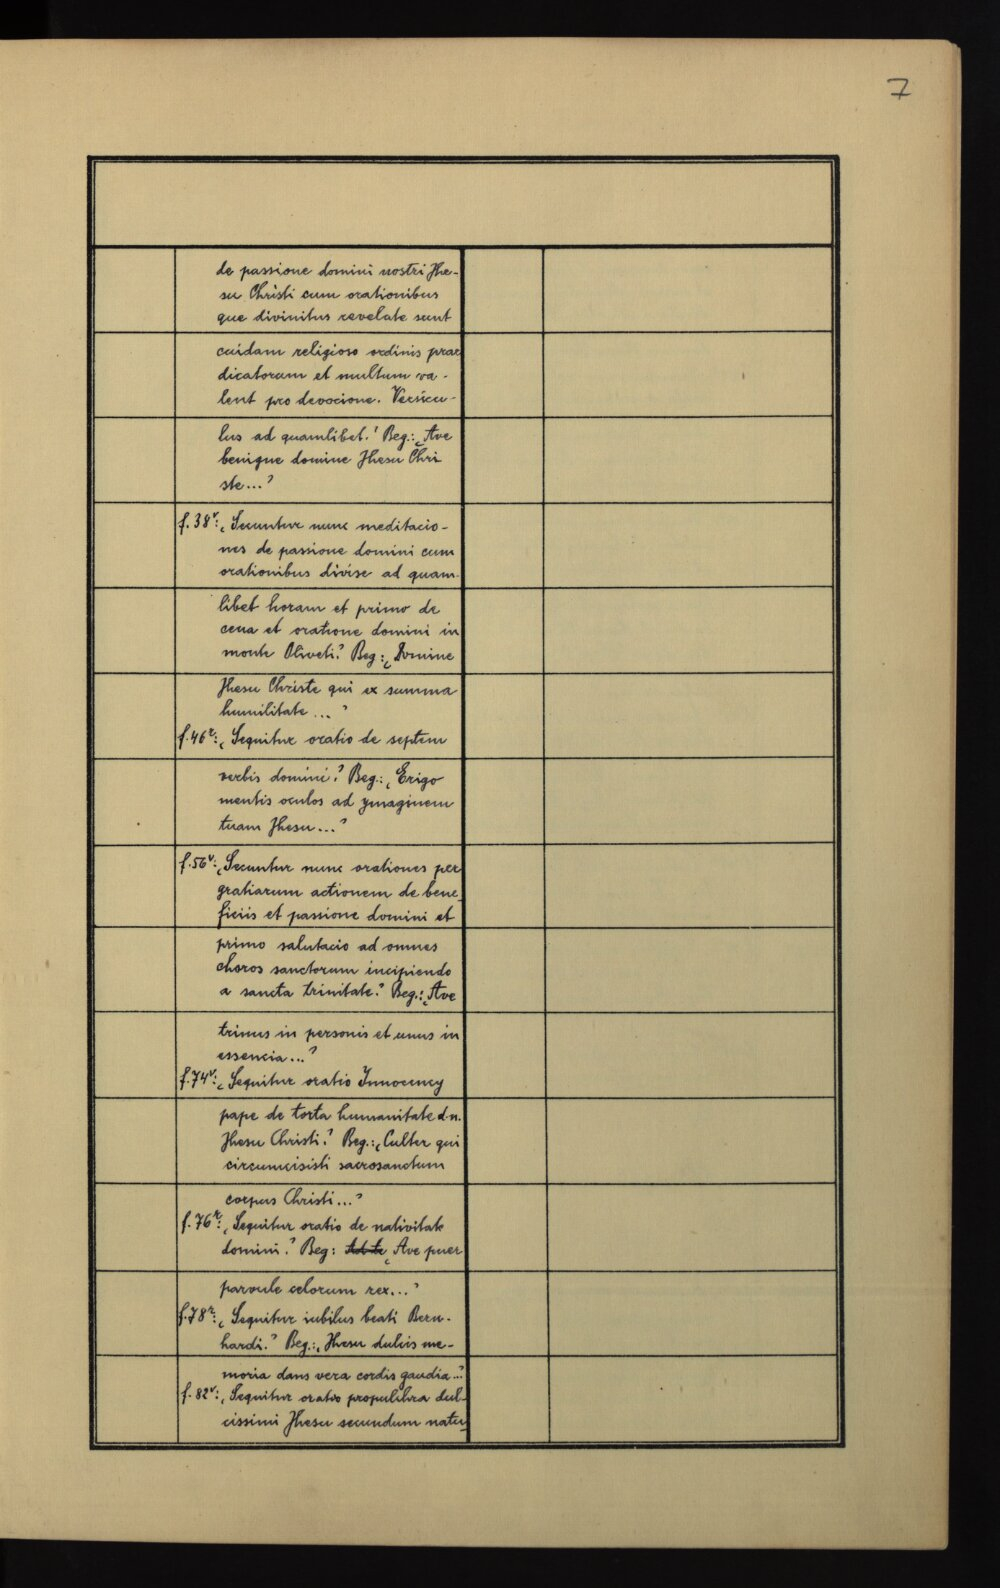 7
de passione domini nostri Jhe-
su Christi cum orationibus
que divinitus revelate sunt
cuidam religioso ordinis prae
dicatorum et multum va-
lent pro devocione. Versicu-
lus ad quamlibet.' Beg.: ‚Ave
benigne domine Jhesu Chri
ste...'
f. 38v: ‚Secuntur nunc meditacio-
nes de passione domini cum
orationibus divise ad quam-
libet horam et primo de
cena et oratione domini in
monte Oliveti.' Beg: ‚Domine
Jhesu Christe qui ex summa
humilitate ...'
f. 46r: ‚Sequitur oratio de septem
verbis domini.' Beg.: ‚Erigo
mentis oculos ad ymaginem
tuam Jhesu...'
f. 56v: ‚Secuntur nunc orationes per
gratiarum actionem de bene-
ficiis et passione domini et
primo salutacio ad omnes
choros sanctorum incipiendo
a sancta trinitate.' Beg.: ‚Ave
trinus in personis et unus in
essencia...'
f. 74v: ‚Sequitur oratio Innocency
pape de torta humanitate d.n.
Jhesu Christi.' Beg.: ‚Culter qui
circumcisisti sacrosanctum
corpus Christi...'
f. 76r: ‚Sequitur oratio de nativitate
domini.' Beg: ‚Ave puer
parvule celorum rex...'
f. 78r: ‚Sequitur iubilus beati Bern-
hardi.' Beg.: ‚Jhesu dulcis me-
moria dans vera cordis gaudia...'
f. 82v: ‚Sequitur oratio propulchra dul-
cissimi Jhesu secundum natu-